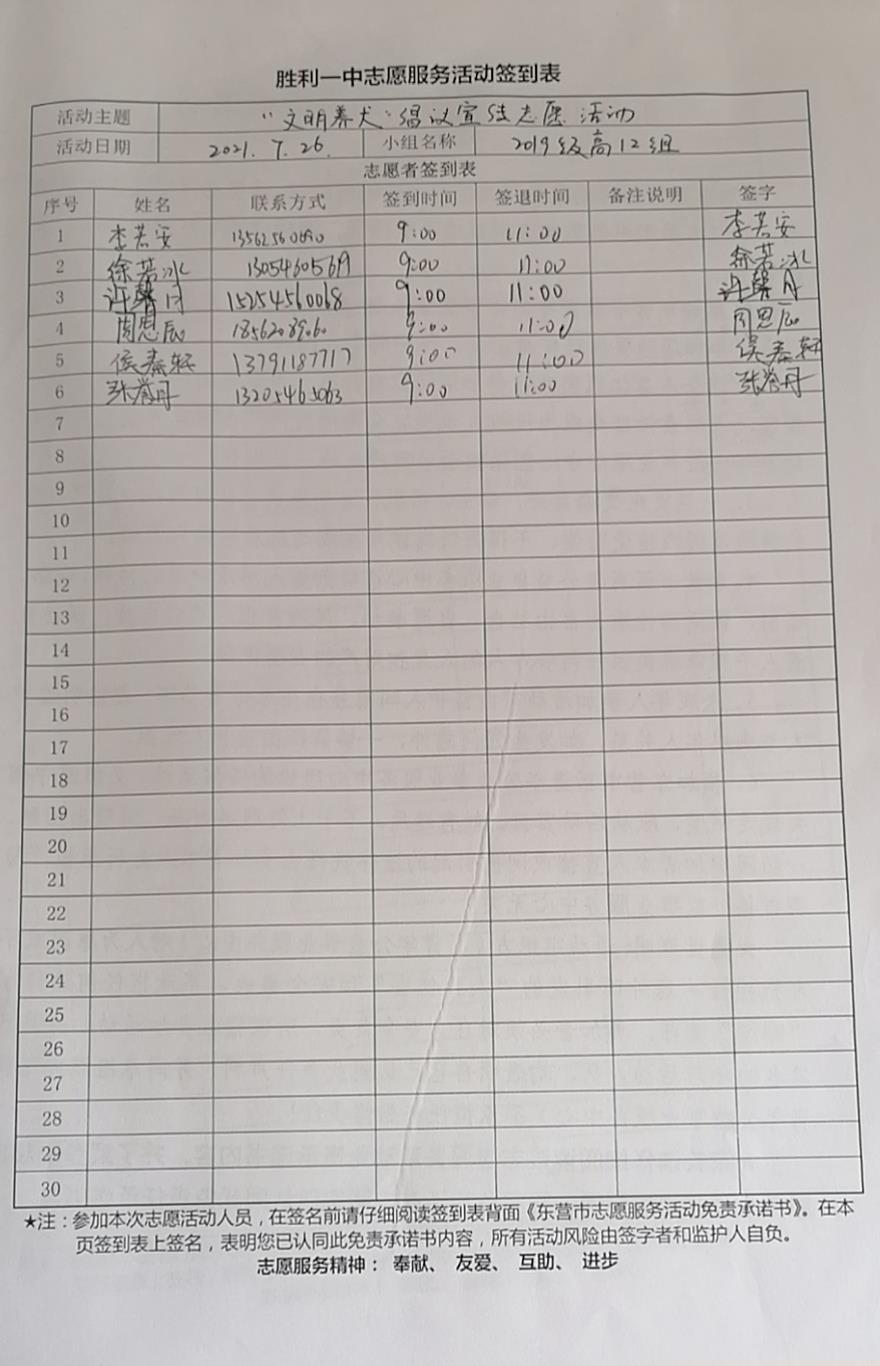 胜利一中志愿服务活动签到表
活动主题 "文明养犬"倡议宣传志愿活动
活动日期 2021. 7. 26. 小组名称 2019级高12组
志愿者签到表
序号 姓名 联系方式 签到时间 签退时间 备注说明 签字
1 李若安 9:00 11:00 李若安
2 徐若冰 9:00 11:00 徐若冰
3 许馨月 15254560068 9:00 11:00 许馨月
4 周思辰 9:00 11:00 周思辰
5 侯春轩 13791187717 9:00 11:00 侯春轩
6 张誉丹 13205465063 9:00 11:00 张誉丹
7
8
9
10
11
12
13
14
15
16
17
18
19
20
21
22
23
24
25
26
27
28
29
30
★注：参加本次志愿活动人员，在签名前请仔细阅读签到表背面《东营市志愿服务活动免责承诺书》。在本
页签到表上签名，表明您已认同此免责承诺书内容，所有活动风险由签字者和监护人自负。
志愿服务精神： 奉献、 友爱、 互助、 进步